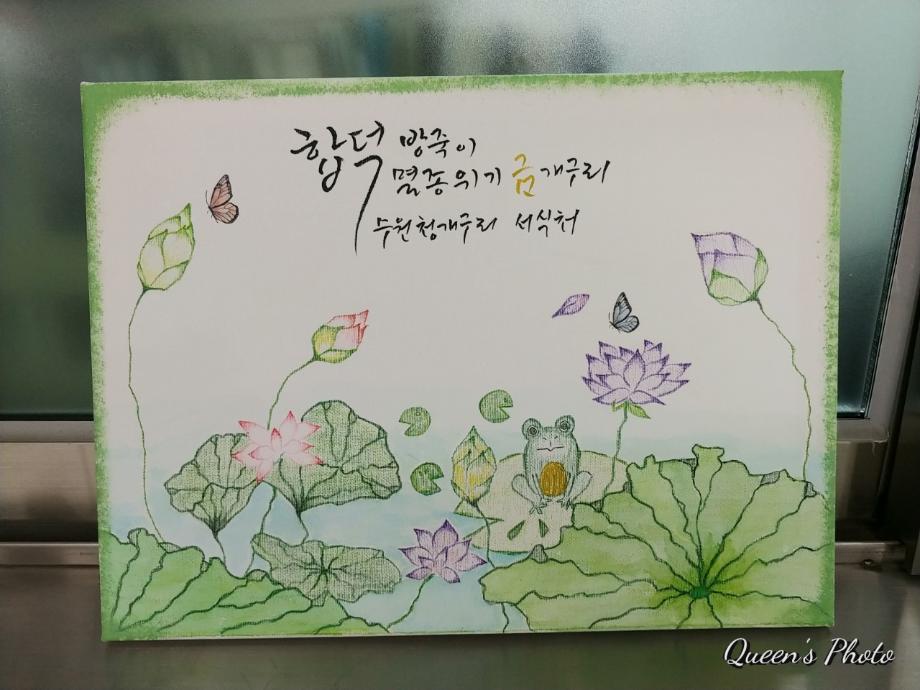 합덕 방죽이
멸종위기 금개구리
수원청개구리 서식처
Queen's Photo